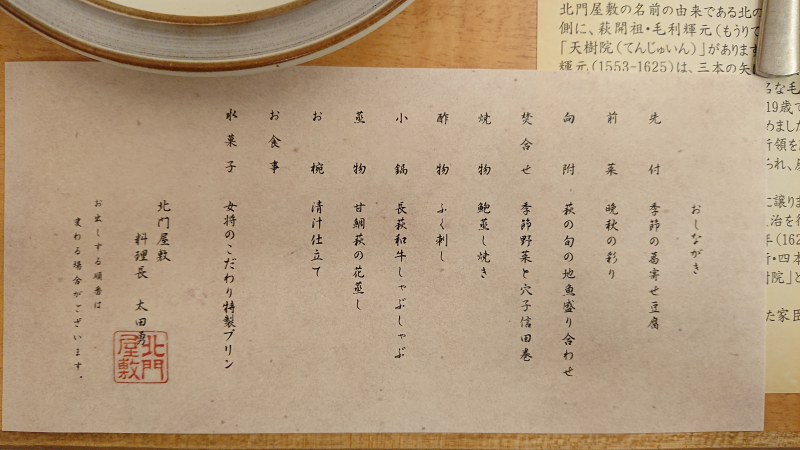 おしながき
先付 季節の葛寄せ豆腐
前菜 晩秋の彩り
向附 萩の旬の地魚盛り合わせ
焚合せ 季節野菜と穴子信田巻
焼物 鮑蒸し焼き
酢物 ふく刺し
小鍋 長萩和牛しゃぶしゃぶ
蒸物 甘鯛萩の花蒸し
お椀 清汁仕立て
お食事
水菓子 女将のこだわり特製プリン
北門屋敷
料理長 太田勇
お出しする順番は
変わる場合がございます。
北門
屋敷
北門屋敷の名前の由来である北の
側に、萩開祖・毛利輝元(もうりて
「天樹院(てんじゅいん)」があります
輝元(1553-1625)は、三本の矢
名な毛
19歳で
めました
行領を
られ、
に譲りま
治を行
年(162
新・四本
樹院」と
た家臣